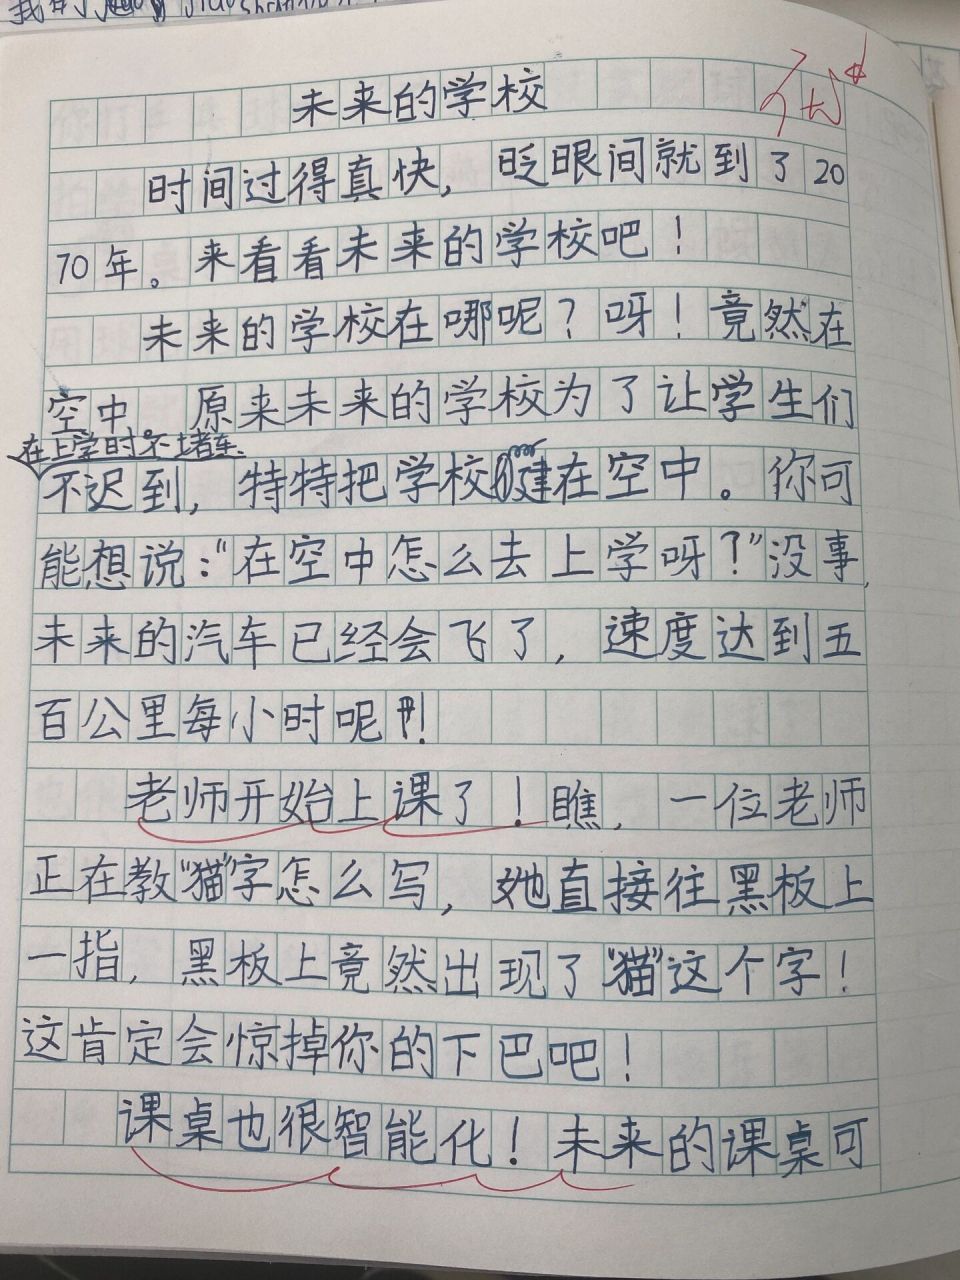 未来的学校
时间过得真快，眨眼间就到了20
70年。来看看未来的学校吧！
未来的学校在哪呢？呀！竟然在
空中。原来未来的学校为了让学生们
在上学时不堵车、
不迟到，特特把学校建在空中。你可
能想说：“在空中怎么去上学呀？”没事，
未来的汽车已经会飞了，速度达到五
百公里每小时呢？！
老师开始上课了！瞧，一位老师
正在教“猫”字怎么写，她直接往黑板上
一指，黑板上竟然出现了“猫”这个字！
这肯定会惊掉你的下巴吧！
课桌也很智能化！未来的课桌可